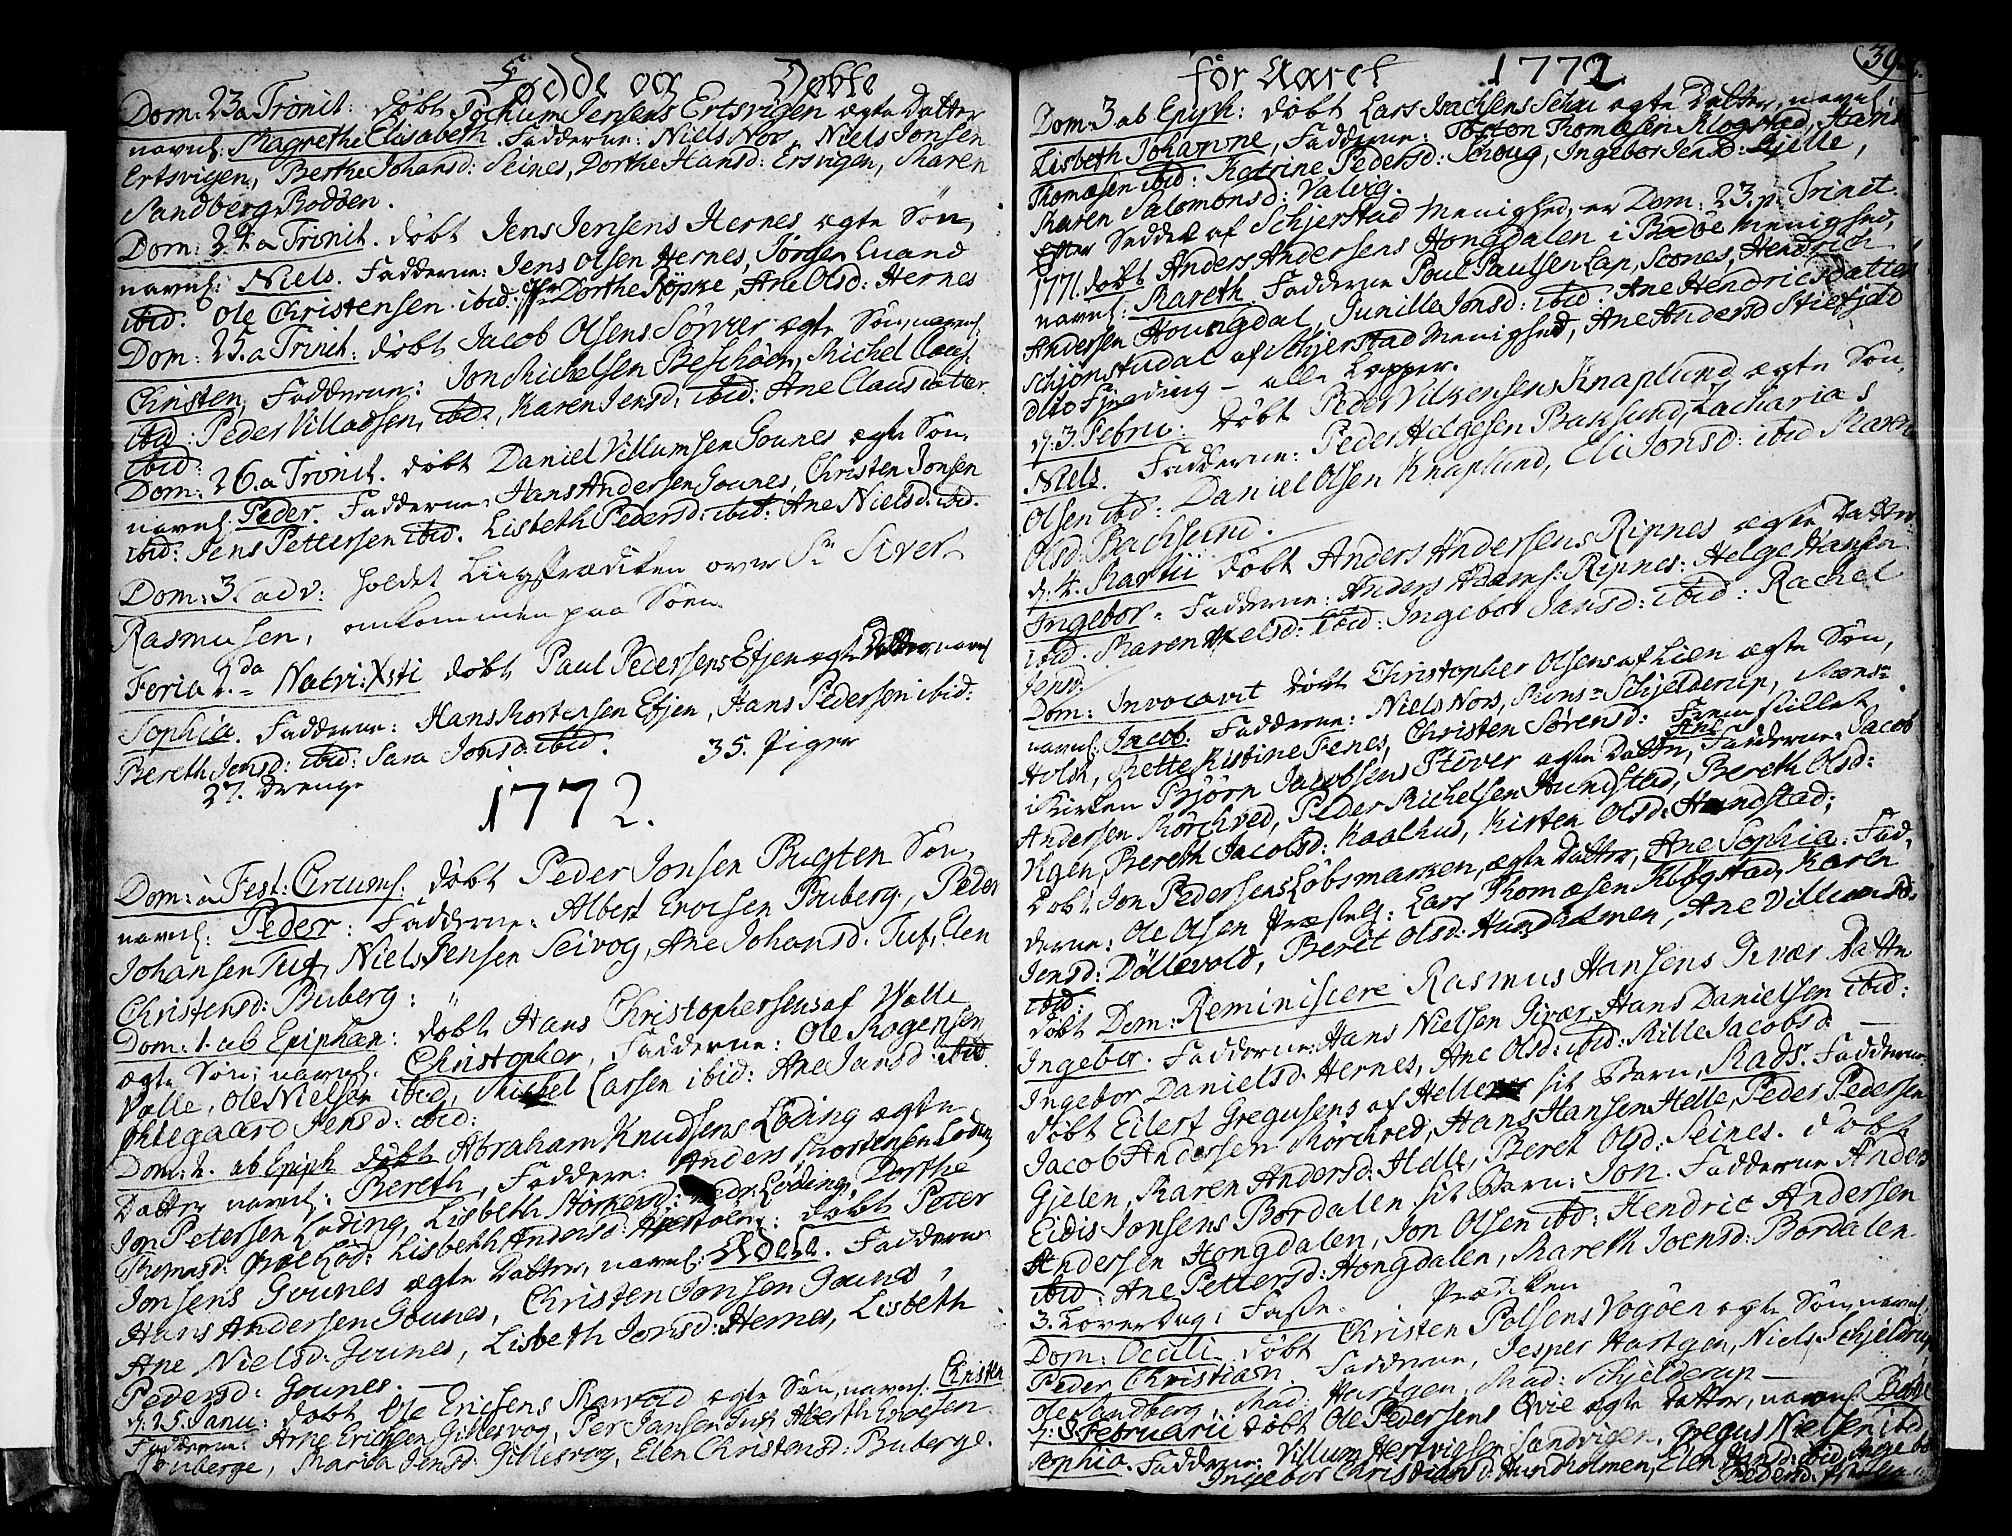 Fødde og Døbte
Dom: 23 a Trinit: døbt Jochum Jensens Ertsvigen ægte Datter
navnl: Magrethe Elisabeth. Fadderne: Niels Nors, Niels Jonsen
Ertsvigen, Berthe Johansd: Seines, Dorthe Hansd: Ersvigen, Maren
Sandberg Bodøen.
Dom: 24 a Trinit. døbt Jens Jensens Hernes ægte Søn,
navnl: Niels. Fadderne: Jens Olsen Hernes, Jørgen Luand
ibid: Ole Christensen ibid: Dorthe Röpke, Ane Olsd: Hernes
Dom: 25. a Trinit: døbt Jacob Olsens Sørvær ægte Søn, navnl:
Christen, Fadderne: Jon Michelsen Beschøen, Michel Claus:
ibid: Peder Villadsen, ibid:, Karen Jensd: ibid: Ane Clausdatter
ibid:
Dom: 26. a Trinit. døbt Daniel Villumsen Gounes ægte Søn,
navnl: Peder. Fadderne: Hans Andersen Gounes, Christen Jonsen
ibid: Jens Pettersen ibid. Lisbeth Pedersd: ibid: Ane Nielsd: ibid.
Dom: 3. adv: holdet Liigprædiken over Sr Siver
Rasmusen, omkommen paa Søen.
Feria 2.da Nativ: Xsti døbt Paul Pedersens Efjen ægte Datter, navnl
Sophia. Fadderne: Hans Mortensen Efjen, Hans Pedersen ibid:
Bereth Jensd: ibid: Sara Jonsd: ibid.
27. drenge 35. Piger
1772.
Dom: a Fest: Circums: døbt Peder Jonsen Bugten Søn,
navnl: Peder: Fadderne: Albert Enoesen Buberg, Peder
Johansen Tuf, Niels Jensen Seivog, Ane Johansd: Tuf, Elen
Christensd: Buberg:
Dom: 1. ab Epiphan: døbt Hans Christophersens af Valle
ægte Søn, navnl. Christopher, Fadderne: Ole Mogensen
Valle, Ole Nielsen ibid, Michel Larsen ibid: Ane Jansd: ibid
Hildegaard Jensd: ibid:
Dom: 2. ab Epiph døbt Abraham Knudsens Løding ægte
Datter navnl: Bereth, Faddere: Anders Mortensen Løding
Jon Petersen Løding, Lisbeth Løding, Dorthe
Thomasd: Lisbeth Andersd: døbt Peter
Jonsens Gounes ægte Datter, navnl: Adela. Fadderne
Hans Andersen Gounes, Christen Jonsen Gounes,
Ane Nielsd: Gounes, Lisbeth Jonsd: Hernes, Lisbeth
Pedersd: Gounes
d: 25 Janu: døbt Ole Ericsens Skavold ægte Søn, navnl: Christen
Fadderne: Arne Ericsen Gillesvog, Per Jansen Tuf, Alberth Enoesen
Buberge, Maria Jensd: Gillesvog, Elen Christensd: Buberge.
for Aaret 1772
39.
Dom: 3 ab Epiph: døbt Lars Isachsens Schau ægte Datter, navnl:
Lisbeth Johanne, Fadderne: Torsten Thomæsen Klogstad, Hans
Thomæsen ibid: Katrine Pedersd: Schoug, Ingebor Jensd: Gjelle,
Maren Salomonsd: Valvig.
Efter Seddel af Schjerstad Menighed, er Dom: 23. p: Trinit.
1771. døbt Anders Andersens Hongdalen i Bodøe Menighed,
navnl: Mareth. Fadderne Poul Paulsen Lap, Scones, Hendrich
Andersen Houngdal, Gunille Jonsd: ibid: Ane Hendricsdatter
Schjønstudal af Schjerstad Menighed, Ane Andersd Stiefjeld
dito Fjerding – alle Lapper.
d: 3. Febru: døbt Peder Vilkensens Knaplund ægte Søn,
Niels. Fadderne: Peder Helgesen Baksund, Zacharias
Olsen ibid: Daniel Olsen Knaplund, Eli Jonsd: ibid Maren
Olsd: Bachsund.
d: 4. Martii døbt Anders Andersens Ripnes ægte Datter
Ingebor. Fadderne: Anders Adams: Ripnes: Helge Hansen
ibid. Maren Nielsd: ibid: Ingebor Jansd: ibid: Rachel
Jensd:
Dom: Invocavit døbt Christopher Olsens af Lien ægte Søn,
navnl: Jacob: Fadderne: Niels Nors, Mons:r Schjelderup, Mons:r
Holst, Mette Kistine Fenes, Christen Sørensd: Fremstillet
i Kirken Bjørn Jacobsens Støver ægte Datter, Ane Fadderne: Jacob
Andersen Mørchved, Peder Michelsen Hundstad, Bereth Olsd:
Vigen, Bereth Jacobsd: Kaalhus, Kisten Olsd: Hundstad;
Døbt Jon Pedersens Løbsmarken, ægte Datter, Ane Sophia. Fad-
derne: Ole Olsen Præstelg: Lars Thomæsen Kløgstad, Karen
Jensd: Döllevold, Beret Olsd: Hundholmen, Ane Villumsd:
ibid:
døbt Dom: Reminiscere Rasmus Hansens Givær Datter
Ingebor. Fadderne: Hans Nielsen Givær, Hans Danielsen ibid:
Ingebor Danielsd: Hernes, Ane Olsd: ibid: Mille Jacobsd:
døbt Eilert Gregusens af Helle sit Barn, Mads: Fadderne
Jacob Andersen Mørchved, Hans Hansen Helle, Peder Pedersen
Gjelen, Maren Andersd: Helle, Beret Olsd: Seines. døbt
Eidis Jonsens Bordalen sit Barn: Jon. Fadderne Anders
Andersen Hongdalen, Jon Olsen ibid: Hendric Andersen
ibid: Ane Pettersd: Hongdalen, Mareth Joensd: Bordalen
3. Løverdag i Faste. Prædiken
Dom: Oculi døbt Christen Polsens Vogøen ægte Søn, navnl:
Peder Christian. Fadderne, Jesper Hartgen, Niels Schjeldrup,
Ole Sandberg, Mad: Hartgen, Mad: Schjelderup –
d: 8 Februarii døbt Ole Pedersens Qvie ægte Datter, navnl Berel
Sophia. Fadderne: Villum Hertvigsen Sandvigen, Gregus Nielsen ibid
Ingebor Christiansd: Hundholmen, Elen Hansd: ibid, Ingebor
Pedersd: